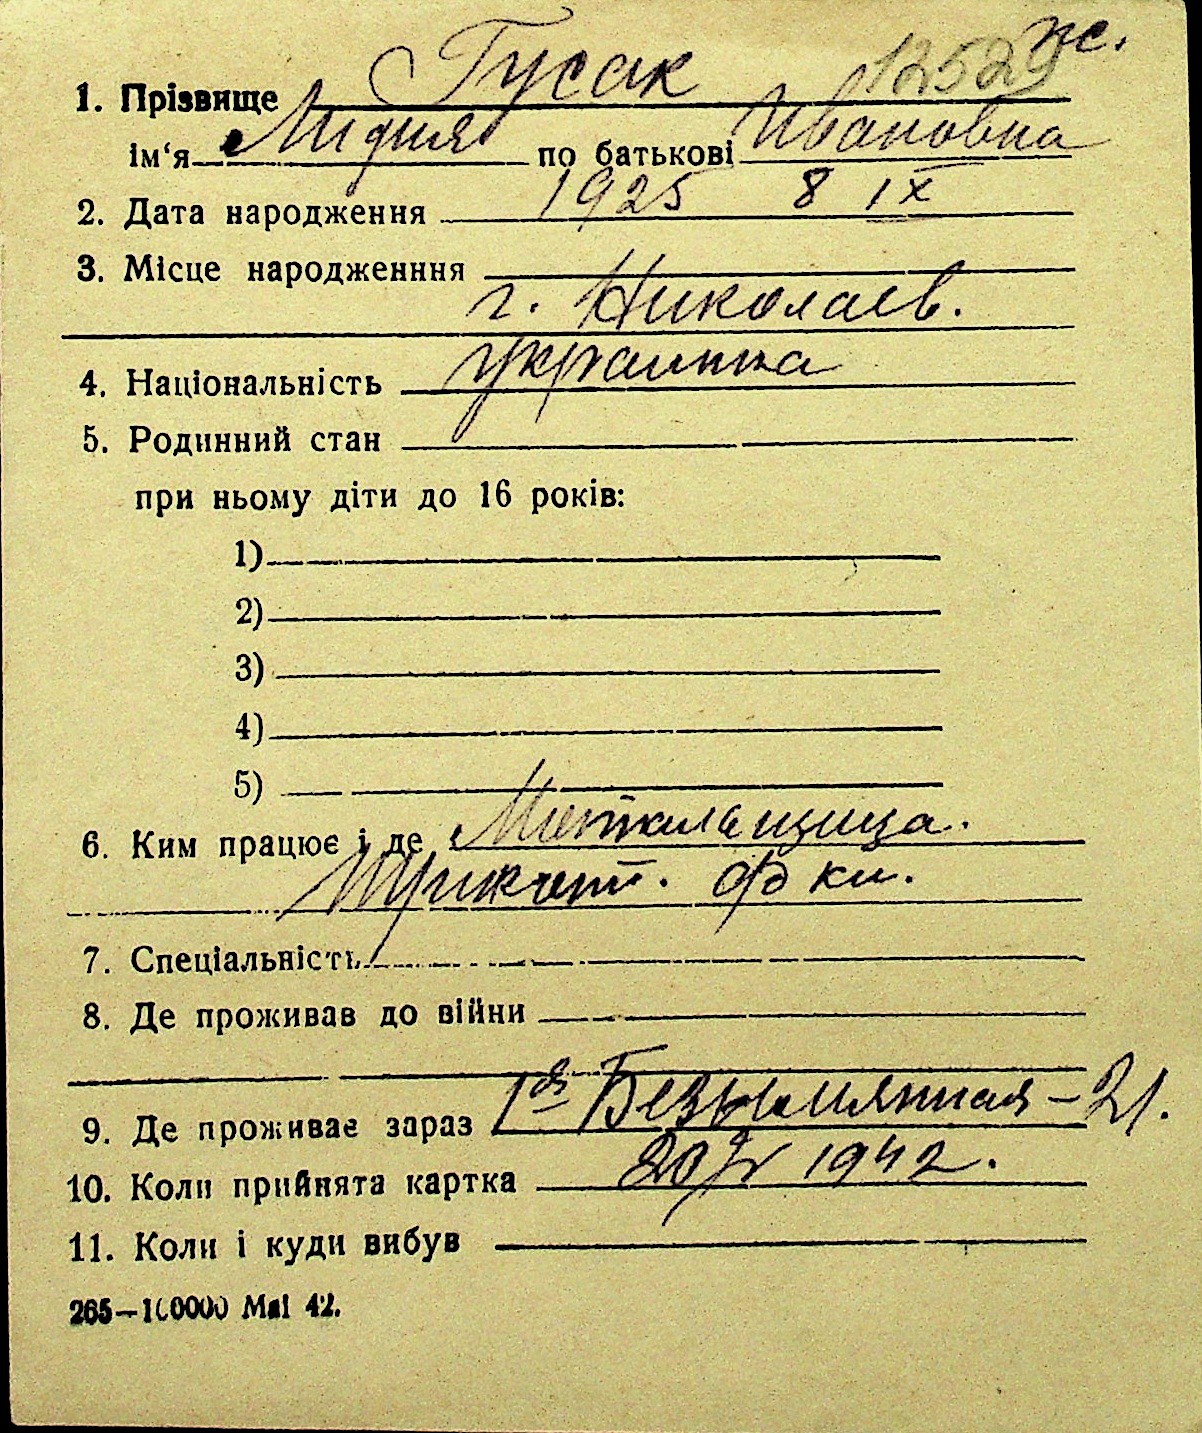 12529 ж.
1. Прізвище Гусак
ім‘я Лидия по батькові Ивановна
2. Дата народження 1925 8 IX
3. Місце народженння
г. Николаев.
4. Національність украинка
5. Родинний стан
при ньому діти до 16 років:
1)
2)
3)
4)
5)
6. Ким працює і де Мотальщица.
Трикот. ф ки.
7. Спеціальність
8. Де проживав до війни
9. Де проживає зараз 1ая Безымянная – 21.
10. Коли прийнята картка 1942.
11. Коли і куди вибув
265—100000 Маі 42.